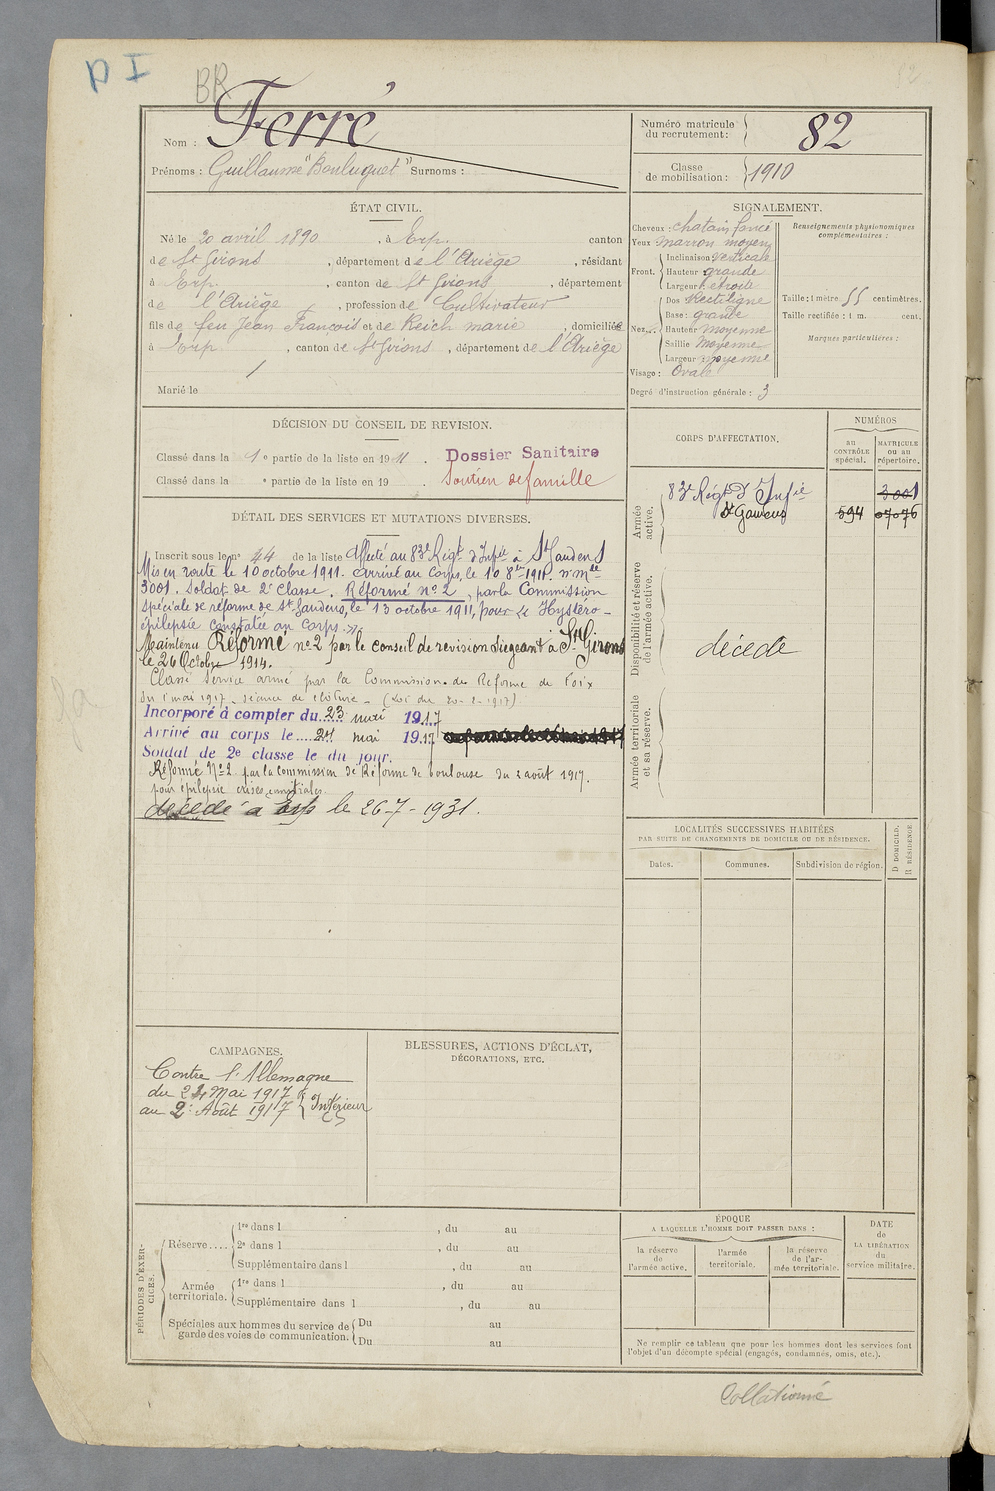 D I
BR
Nom : Ferré
Prénoms : Guillaume "Bouluguet" Surnoms :
Numéro matricule du recrutement : 82
Classe de mobilisation : 1910
ÉTAT CIVIL.
Né le 20 avril 1890, à Erp. canton
de St Girons, département de l'Ariège, résidant
à Erp., canton de St Girons, département
de l'Ariège, profession de Cultivateur
fils de feu Jean François et de Reich marie, domiciliés
à Erp, canton de St Girons, département de l'Ariège
Marié le
SIGNALEMENT.
Cheveux : chatain foncé
Yeux marron moyen
Front. Inclinaison verticale
Hauteur grande
Largeur : étroite
Nez. Dos Rectiligne
Base : grande
Hauteur moyenne
Saillie Moyenne
Largeur : moyenne
Visage : Ovale
Renseignements physionomiques complémentaires :
Taille : 1 mètre 55 centimètres.
Taille rectifiée : 1 m. cent.
Marques particulières :
Degré d'instruction générale : 3
DÉCISION DU CONSEIL DE REVISION.
Classé dans la 1e partie de la liste en 1911. Dossier Sanitaire
Classé dans la e partie de la liste en 19 . Soutien de famille
DÉTAIL DES SERVICES ET MUTATIONS DIVERSES.
Inscrit sous le no 44 de la liste Affecté au 83e Régt d'Infie à St Gaudens
Mis en route le 10 octobre 1911. arrivé au Corps, le 10 8bre 1911. n° mle
3001. Soldat de 2e Classe. Réformé n° 2, par la Commission
spéciale de réforme de St Gaudens, le 13 octobre 1911, pour « Hystéro-
épilepsie constatée au Corps. »
Maintenu Réformé n° 2 par le conseil de revision siégeant à St Girons
le 26 Octobre 1914.
Classé Service armé par la Commission de Réforme de Foix
du 1 mai 1917. séance de clôture. (Loi du 20-2-1917)
Incorporé à compter du 23 mai 1917
Arrivé au corps le 24 mai 1917
Soldat de 2e classe le du jour.
Réformé N° 2 par la Commission de Réforme de Toulouse du 2 août 1917.
pour épilepsie crises
décédé à Erp le 26-7-1931.
CORPS D'AFFECTATION.
NUMÉROS
au CONTRÔLE spécial.
MATRICULE ou au répertoire.
Armée active.
83e Régt d'Infie 3001
St Gaudens 594 07076
Disponibilité et réserve de l'armée active.
décédé
Armée territoriale et sa réserve.
LOCALITÉS SUCCESSIVES HABITÉES
PAR SUITE DE CHANGEMENTS DE DOMICILE OU DE RÉSIDENCE.
Dates.
Communes.
Subdivision de région.
D DOMICILE.
R RÉSIDENCE
CAMPAGNES.
Contre l'Allemagne
du 24 Mai 1917
au 2 Août 1917 } Intérieur
BLESSURES, ACTIONS D'ÉCLAT,
DÉCORATIONS, ETC.
PÉRIODES D'EXERCICES.
Réserve.... 1re dans l , du au
2e dans l , du au
Supplémentaire dans l , du au
Armée territoriale. 1re dans l , du au
Supplémentaire dans l , du au
Spéciales aux hommes du service de garde des voies de communication. Du au
Du au
ÉPOQUE
A LAQUELLE L'HOMME DOIT PASSER DANS :
la réserve de l'armée active.
l'armée territoriale.
la réserve de l'armée territoriale.
DATE de LA LIBÉRATION du service militaire.
Ne remplir ce tableau que pour les hommes dont les services font
l'objet d'un décompte spécial (engagés, condamnés, omis, etc.).
Collationné